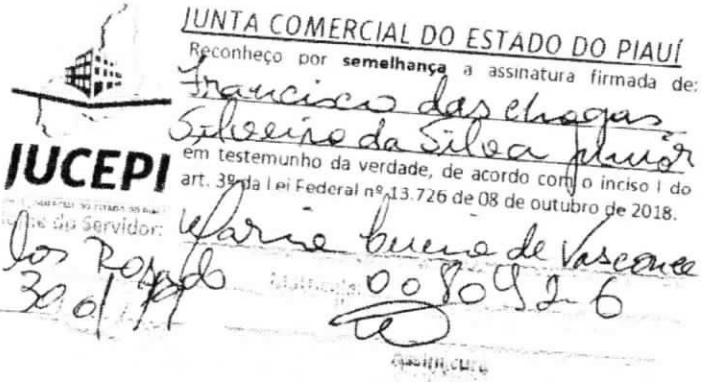 JUNTA COMERCIAL DO ESTADO DO PIAUÍ
Reconheço por semelhança a assinatura firmada de:
Francisco das Chagas
Silveira da Silva Junior
JUCEPI
em testemunho da verdade, de acordo com o inciso I do
art. 3º da Lei Federal nº 13.726 de 08 de outubro de 2018.
Nome do Servidor: Maria Buena de Vasconce
los Rosado Matrícula: 008092-6
30
Assinatura